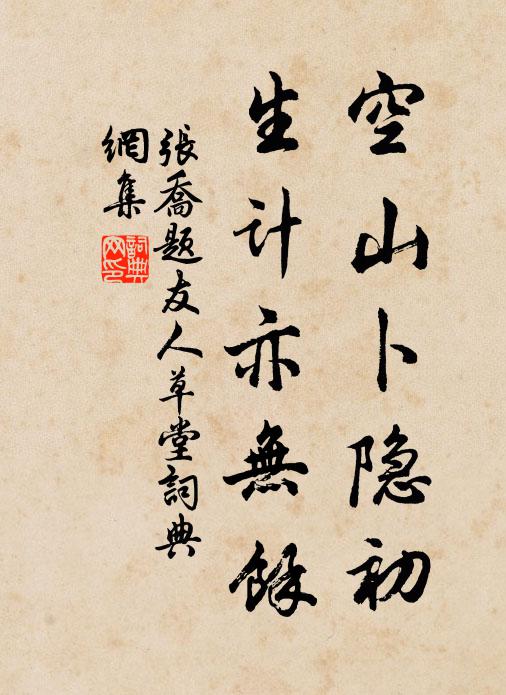 空山卜隐初
生计亦無餘
張喬题友人草堂詞典
網集
詞典
网印